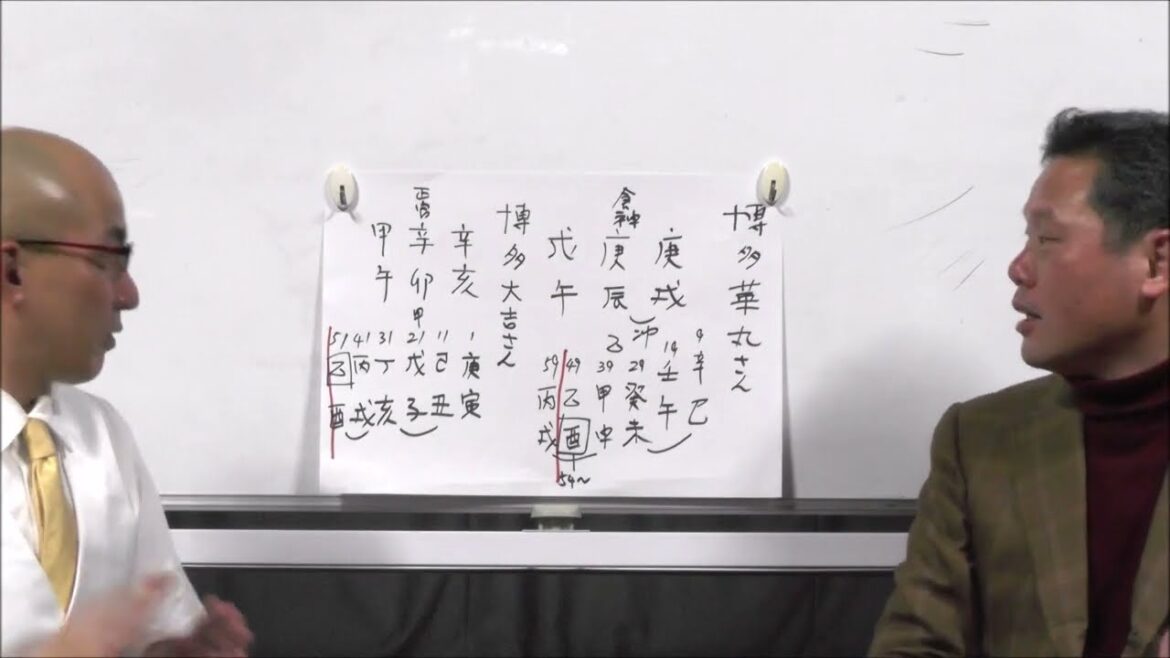 博多華丸さん
庚戌
食神
庚辰
冲
乙
戊午
9辛巳
19壬午
29癸未
39甲申
49乙酉
54〜
59丙戌
博多大吉さん
辛亥
正官
辛卯
甲
甲午
1庚寅
11己丑
21戊子
31丁亥
41丙戌
51乙酉